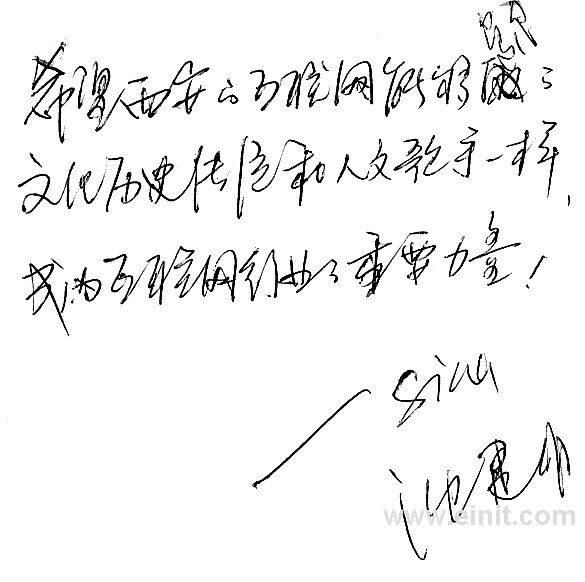 希望西安的互联网能够跟
文化历史传统和人文歌手一样,
成为互联网行业的重要力量!
—— Sina
www.einit.com